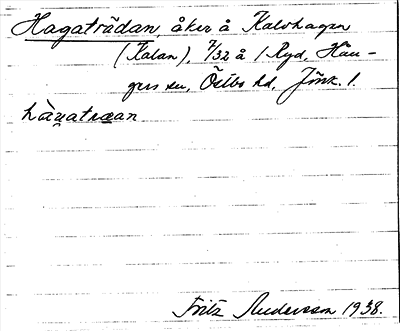 Hagaträdan, åker å Kalvhagen
(Kalan), 7/32 å 1 Ryd, Hån-
gers sn, Östbo hd, Jönk. l.
Fritz Andersson 1938.